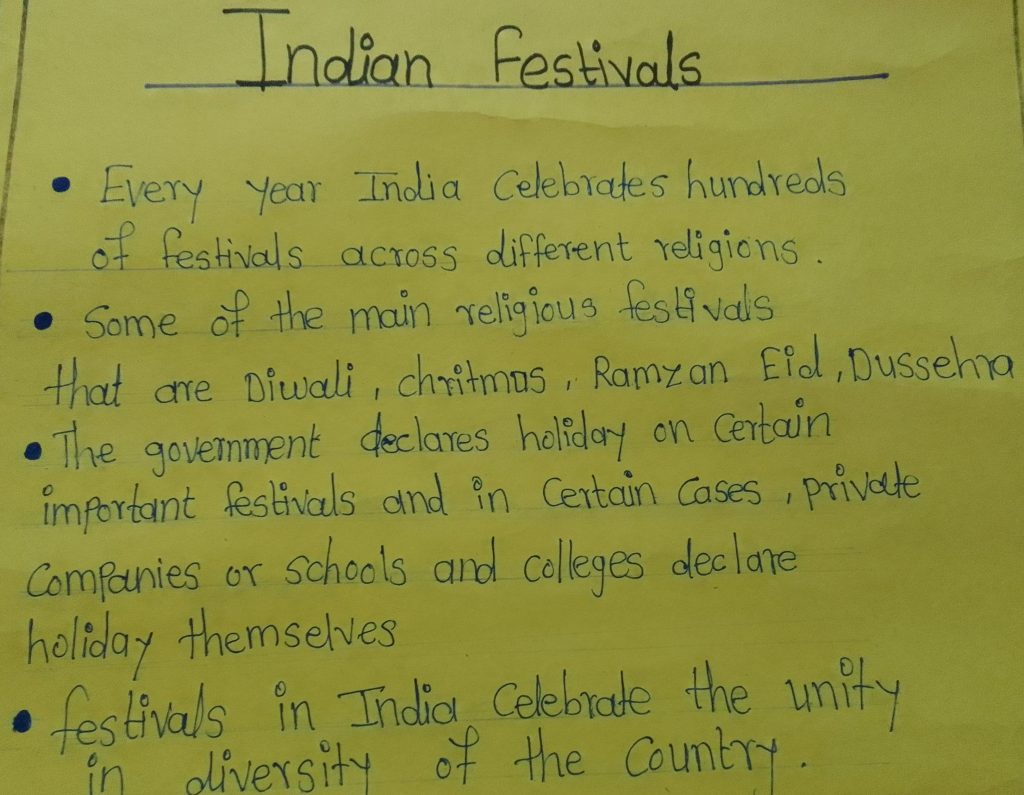 Indian Festivals
• Every year India Celebrates hundreds
of festivals across different religions.
• Some of the main religious festivals
that are Diwali, chritmas, Ramzan Eid, Dussehra
• The government declares holiday on Certain
important festivals and in Certain Cases, private
Companies or schools and colleges declare
holiday themselves
• festivals in India Celebrate the unity
in diversity of the Country.